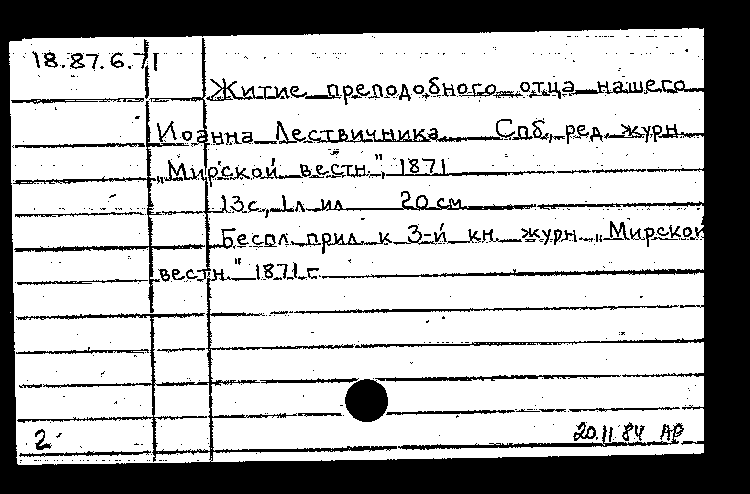 18.87.6.71
Житие преподобного отца нашего
Иоанна Лествичника Спб, ред. журн.
„Мирской вестн.", 1871
13 с., 1 л. ил 20 см.
Беспл. прил. к 3-й кн. журн. „Мирской
вестн." 1871 г.
2
20.11.84 АР